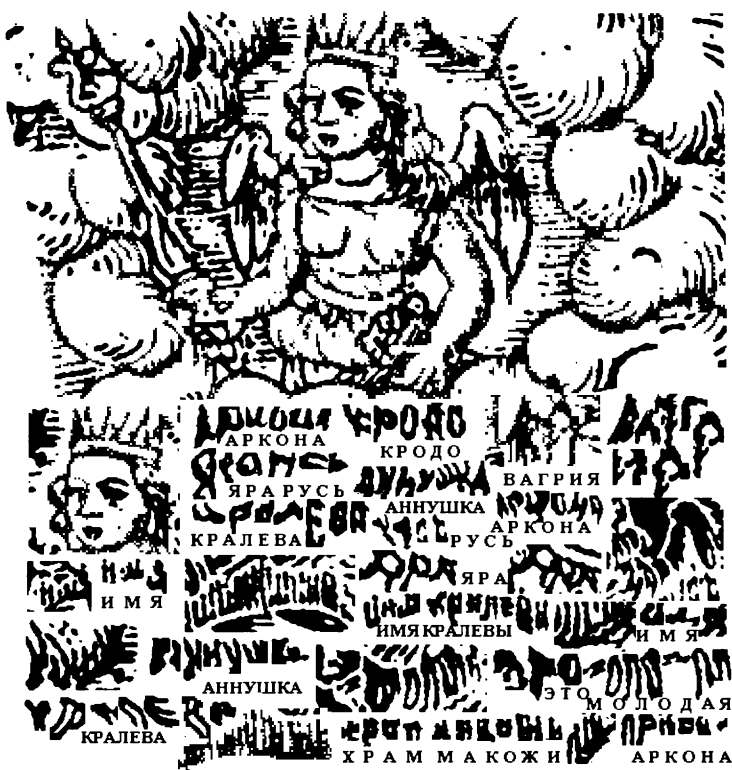 АРКОНА
КРОДО
ВАГРИЯ
ЯРА РУСЬ
АННУШКА
АРКОНА
КРАЛЕВА
РУСЬ
ИМЯ
ЯРА
ИМЯ КРАЛЕВЫ
ИМЯ
АННУШКА
ЭТО
МОЛОДАЯ
КРАЛЕВА
ХРАМ МАКОЖИ
АРКОНА